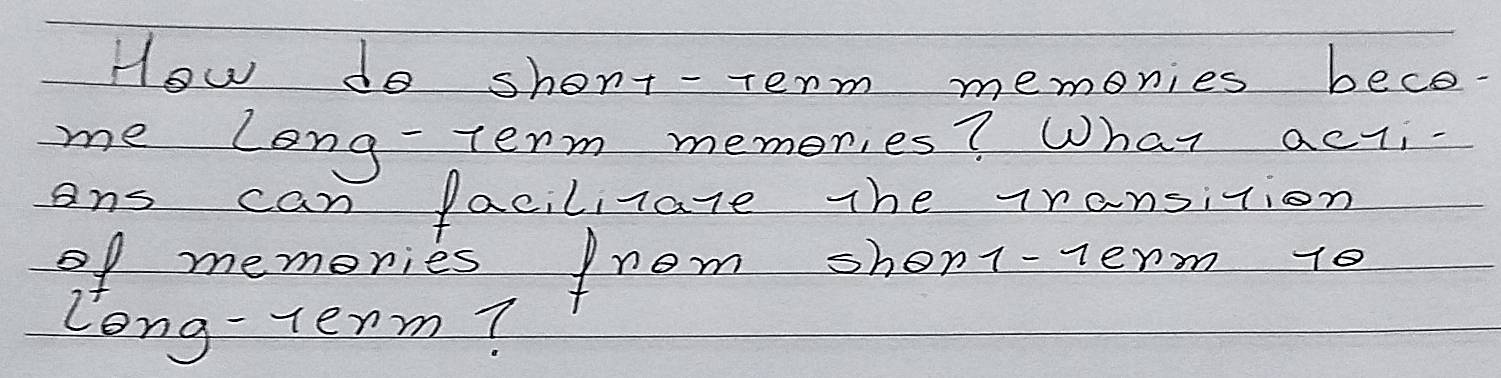 How do short-term memories beco-
me long-term memories? What acti-
ons can facilitate the transition
of memories from short-term to
long-term?